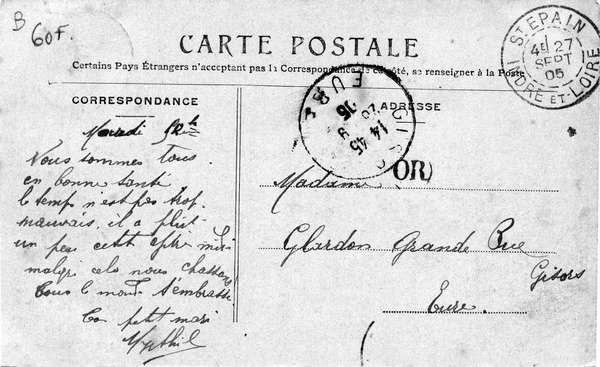 B
60F.
CARTE POSTALE
Certains Pays Étrangers n'acceptant pas la Correspondance de ce côté, se renseigner à la Poste
CORRESPONDANCE
ADRESSE
Nous sommes tous
en bonne santé
le temps n'est pas trop
mauvais, il a plut
un peu cette après midi
malgré cela nous chassons
Tous le monde t'embrasse
Ton petit mari
Madame
Glardon Grande Rue
Gisors
Eure.
OR)
ST EPAIN
4E 27
SEPT
05
INDRE ET LOIRE
GISORS
14 45
EURE